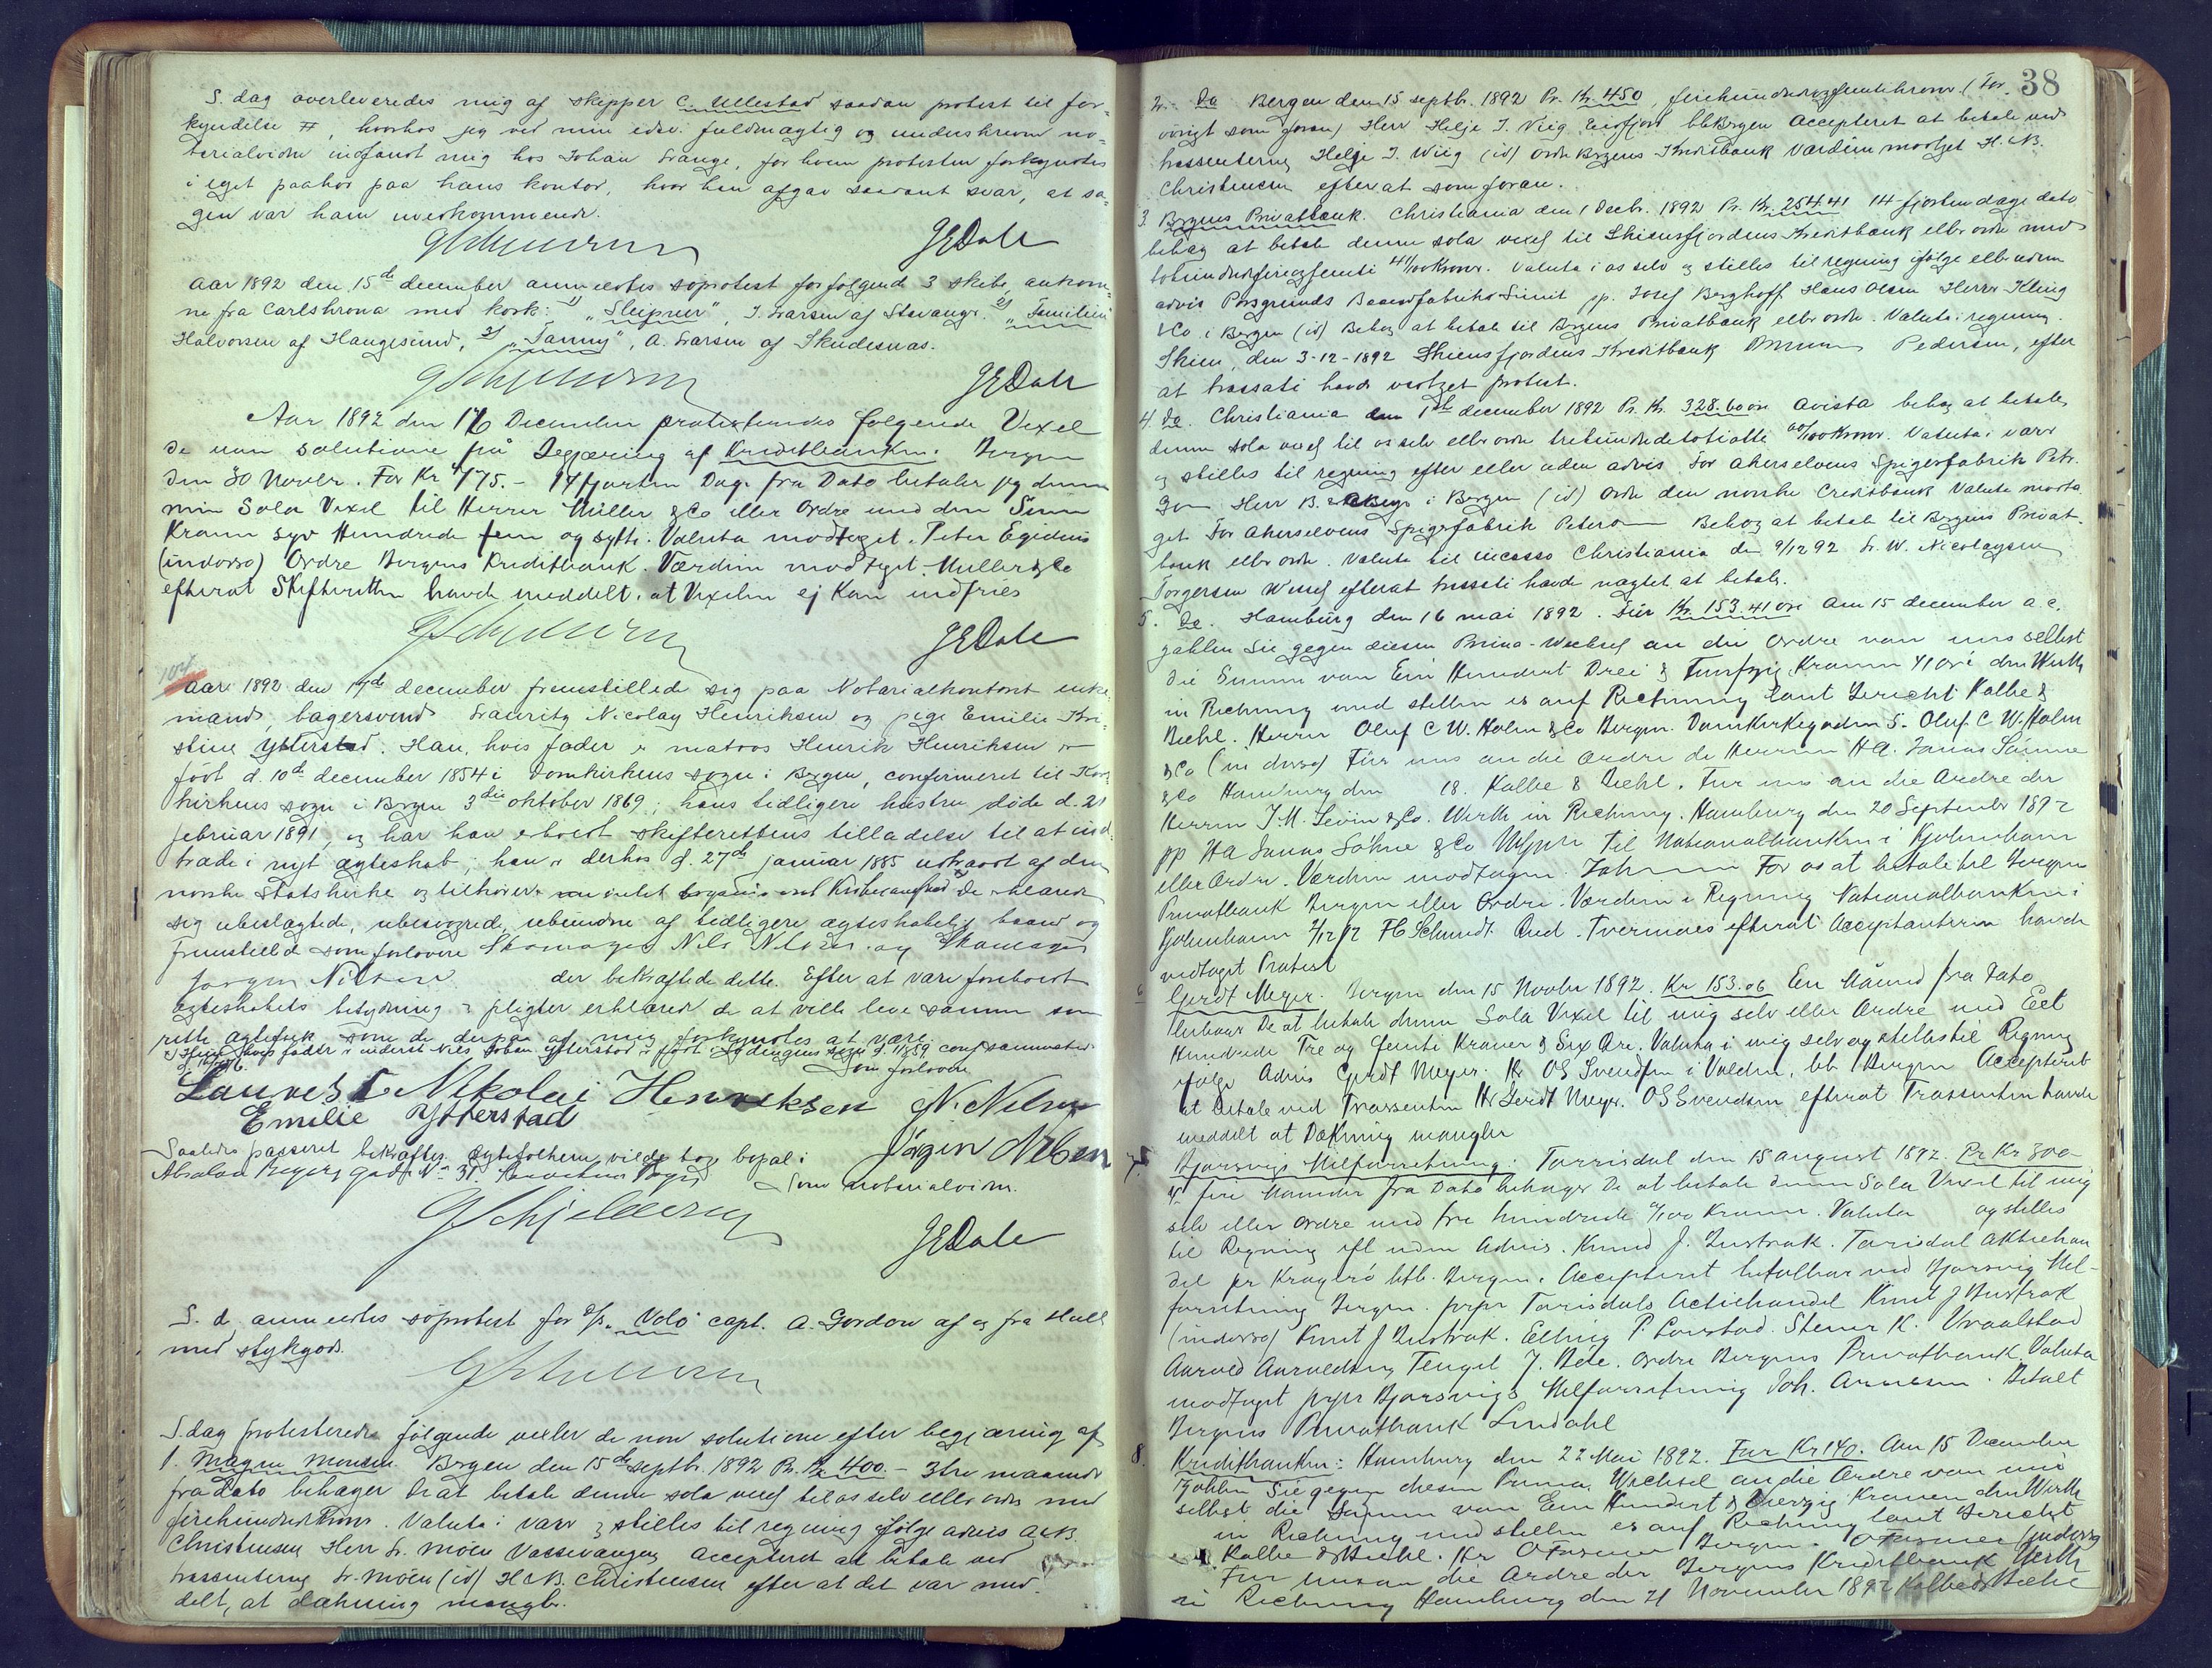 S. dag overleveredes mig af skipper C. Ullestad saadan protest til for-
kyndelse #, hvorhos jeg ved min edsv. fuldmægtig og underskrevne no-
tarialvidne indfandt mig hos Johan Lange, for hvem protesten forkyndtes
i eget paahør paa hans kontor, hvor han afgav saadant svar, at sa-
gen var ham uvedkommende.
GSchjelderup JEDahl
Aar 1892 den 15de december anmeldtes søprotest for følgende 3 skibe, ankom-
ne fra Carlskrona med kork: 1) "Sleipner", J. Larsen af Stavanger. 2) "Familien"
Halvorsen af Haugesund, 3) "Fanny", A. Larsen af Skudesnæs.
GSchjelderup JEDahl
Aar 1892 den 16 December protesteredes følgende Vexel
de non solutione på Begjæring af Kreditbanken: Bergen
den 30 Novbr. For Kr 775.- 14 fjorten Dage fra Dato betaler jeg denne
min Sola Vexel til Herrer Müller & Co eller Ordre med den Sum
Kroner syv Hundrede fem og sytti. Valuta modtaget. Peter Egidius
(indorso) Ordre Bergens Kreditbank. Værdien modtaget. Müller & Co
efterat Skifteretten havde meddelt, at Vexelen ej kan indfries
GSchjelderup JEDahl
104
Aar 1892 den 17de december fremstillede sig paa Notarialkontoret enke-
mand, bagersvend Lauritz Nicolay Henriksen og pige Emilie Kri-
stine Ytterstad. Han, hvis fader er matros Henrik Henriksen er
født d. 10de december 1854 i Domkirkens sogn i Bergen, confirmeret til Kors-
kirkens sogn i Bergen 3die oktober 1869; hans tidligere hustru døde d. 21
februar 1891, og har han erhvert skifterettens tilladelse til at ind-
træde i nyt ægteskab; han er derhos d. 27de januar 1885 udtraadt af den
norske Statskirke og tilhører intet Kirkesamfund. De erklærede
sig ubeslægtede, ubesvogrede, ubundne af tidligere ægteskabelig baand og
fremstillede som forlovere Skomager Nils Nilsen og Skomager
Jørgen Nilsen der bekræftede dette. Efter at være foreholdt
ægteskabets betydning & pligter erklærede de at ville leve sammen som
rette ægtefolk som de derpaa af mig forkyndtes at være
Som forlovere
Laurets Nikolai Henreksen N. Nilsen
Emilie Ytterstad
Jörgen Nilsen
Saaledes passeret bekræfter. Ægtefolkene vilde tage bopæl i
Absalon Beyers gade No 31.
Som notarialvidne.
GSchjelderup
JEDahl
S. d. anmeldtes søprotest for D/S "Volo" capt. A. Gordon af og fra Hull
med stykgods.
GSchjelderup
S. dag protesteredes følgende vexler de non solutione efter begjæring af
1. Magne Monsen. Bergen den 15de septb. 1892 Pr. Kr. 400.- 3 tre maaneder
fra dato behager De at betale denne sola vexel til os selv eller ordre med
firehundrede Kroner. Valuta i varer & stilles til regning ifølge advis A & B.
Christensen Herr L. Moen Vossevangen Accepteret at betale ved
trassenterne L. Moen (id) H & B. Christensen efter at det var med-
delt, at dækning mangler.
38
2. Do Bergen den 15 septb. 1892 Pr. Kr. 450, firehundredeogfemtikroner. (For-
øvrigt som foran) Herr Helje J. Viig Eidfjord btBergen Accepteret at betale ved
trassenterne Helje J. Wiig (id) Ordre Bergens Kreditbank Værdien modtaget H. & B.
Christensen efter at som foran.
3. Bergens Privatbank. Christiania den 1 Decbr. 1892 Pr. Kr. 254.41 14 fjorten dage dato
behag at betale denne sola vexel til Skiensfjordens Kreditbank eller ordre med
tohundredefireogfemti 41/100 Kroner. Valuta i os selv og stilles til regning ifølge eller uden
advis Porsgrunds Limit pp. Josef Berghoff Hans Olsen Herrer Kling
& Co. i Bergen (id) Behag at betale til Bergens Privatbank eller ordre. Valuta i regning.
Skien, den 3-12-1892 Skiensfjordens Kreditbank Pedersen, efter
at trassati havde vedtaget protest.
4. Do. Christiania den 1ste december 1892 Pr. Kr. 328.60 øre Avista behag at betale
denne sola vexel til os selv eller ordre trehundredetotiotte 60/100 Kroner. Valuta i varer
og stilles til regning efter eller uden advis For Akerselvens Spigerfabrik Petr.
Herr B. i Bergen (id) Ordre den norske Creditbank Valuta modta-
get For Akerselvens Spigerfabrik Behag at betale til Bergens Privat-
bank eller ordre. Valuta til incasso Christiania den 9/12 92 L. W. Nicolaysen
Torgersen Wessel efterat trassati havde nægtet at betale.
5. Do. Hamburg den 16 mai 1892. Für Kr. 153.41 öre Am 15 december a. c.
zahlen Sie gegen diesen Prima-Wechsel an die Ordre von uns selbst
die Summe von Ein Hundert Drei & Funfzig Kronen 41 öre den Werth
in Rechnung und stellen es auf Rechnung laut Bericht Kalbe &
Biehl. Herrn Oluf C W. Holm & Co Bergen. Domkirkegaden 5. Oluf C W. Holm
& Co (in dorso) Für uns an die Ordre de Herren H A. Jonas Söhne
& Co Hamburg den 18. Kalbe & Biehl. Fur uns an die Ordre der
Herren J. M. Levin & Co. Werth in Rechnung. Hamburg den 20 September 1892
pp HA Jonas Söhne & Co Til Nationalbanken i Kjøbenhavn
eller Ordre. Værdien modtagen. For os at betale til Bergens
Privatbank Bergen eller Ordre. Værdien i Regning Nationalbanken i
Kjøbenhavn 2/12 92 FC Schmidt And. Tvermoes efterat Acceptanterne havde
vedtaget Protest
6 Gerdt Meyer. Bergen den 15 Novbr 1892. Kr 153.06 En Måned fra Dato
behager De at betale denne Sola Vexel til mig selv eller Ordre med Eet
Hundrede Tre og femti Kroner & Sex Øre. Valuta i mig selv og stilles til Regning
ifølge Advis Gerdt Meyer. Hr OS Svendsen i Volden, btb Bergen Accepteret
at betale ved Trassenten Hr Gerdt Meyer. OS Svendsen efterat Trassenten havde
meddelt at Dækning mangler
7. Bjorsvigs Melforretning. Torrisdal den 15 august 1892. Pr Kr 300
4 fire Maaneder fra Dato behager De at betale denne Sola Vexel til mig
selv eller ordre med tre hundrede 0/100 Kroner. Valuta og stilles
til Regning ifl uden Advis. Knud J. Bustrak. Torisdal Aktiehan
del pr Kragerö btb. Bergen. Accepteret betalbar ved Bjorsvig Mel-
forretning Bergen. prpr Torisdals Actiehandel Knut J Bustrak
(indorso) Knut J Bustrak. Elling P. Lonstad. Stener K. Vraalstad
Aavald Aavaldsen, Tengel J. Bøe. Ordre Bergens Privatbank Valuta
modtaget prpr Bjorsvigs Melforretning Joh. Arnesen. Betalt
Bergens Privatbank Lindahl
8. Kreditbanken: Hamburg den 22 Mai 1892. Fur Kr 140. Am 15 December
zahlen Sie gegen diesen Prima Wechsel an die Ordre von uns
selbst die Summe von Ein Hundert & vierzig Kronen den Werth
in Rechnung und stellen es auf Rechnung laut Bericht
Kalbe & Biehl. Hr O Fasmer Bergen. O Fasmer (indorso)
Fur uns an die Ordre der Bergens Kreditbank Werth
in Rechnung Hamburg den 21 November 1892 Kalbe & Biehl